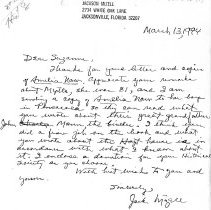 JACKSON MIZELL
2734 WHITE OAK LANE
JACKSONVILLE, FLORIDA 32207
March 13, 1994
Dear Suzanne:
Thanks for your letter and copies
of Amelia Now. Appreciate your remarks
about Myrtle, she was 81, and I am
sending a copy of Amelia Now to her boys
so they can read what
you wrote about their great grandfather
John Mann the birder. I think you
did a fine job on the book and what
you wrote about the Hart house is in
accordance with what I know about
it. I enclose a donation for your Historical
Society as you chose.
With best wishes to you and
yours.
Sincerely,
Jack Mizell